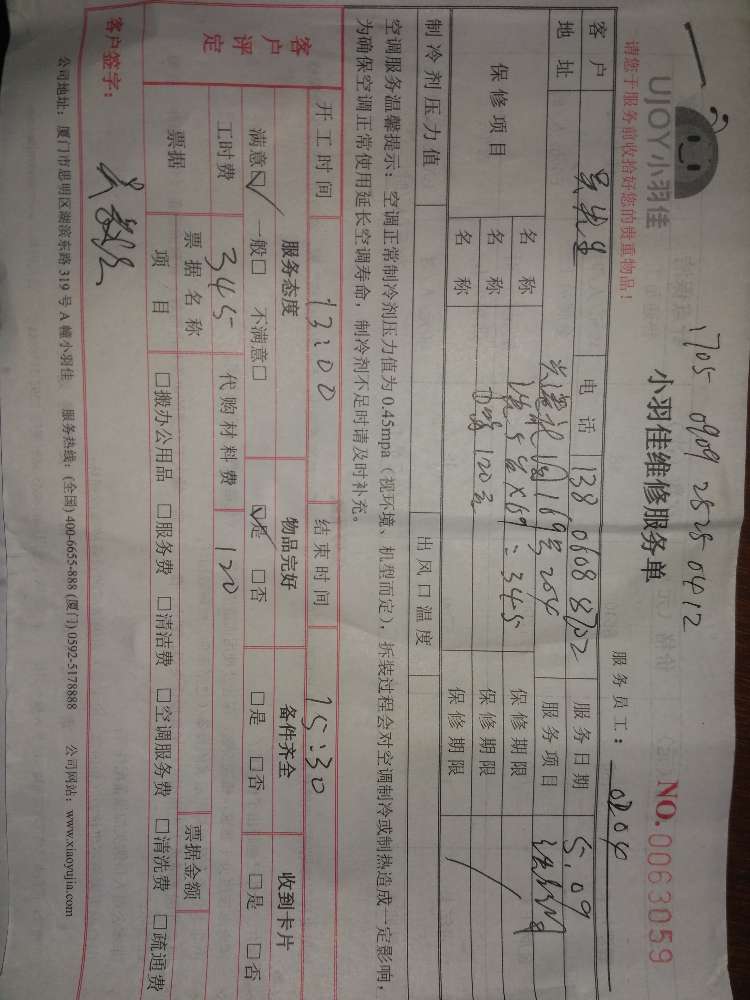 1705 0909 2525 0412
UJOY小羽佳
小羽佳维修服务单
NO.0063059
请您于服务前收拾好您的贵重物品!
服务员工: 0204
客户 吴先生 电话 138 0608 8702 服务日期 5.09
地址 169号204 服务项目
保修项目 名称 洗5台×69=345 保修期限
名称 加瑞 120元 保修期限
名称 保修期限
制冷剂压力值 出风口温度
空调服务温馨提示:空调正常制冷剂压力值为0.45mpa(视环境、机型而定),拆装过程会对空调制冷或制热造成一定影响,
为确保空调正常使用延长空调寿命,制冷剂不足时请及时补充。
开工时间 13:00 结束时间 15:30
客户评定 服务态度 物品完好 备件齐全 收到卡片
满意☑ 一般□ 不满意□ ☑是 □否 □是 □否 □是 □否
工时费 345 代购材料费 120
票据 票据名称 票据金额
项目 □搬办公用品 □服务费 □清洁费 □空调服务费 □清洗费 □疏通费
客户签字:
公司地址:厦门市思明区湖滨东路319号A幢小羽佳 服务热线:(全国)400-6655-888 (厦门)0592-5178888 公司网站:www.xiaoyujia.com